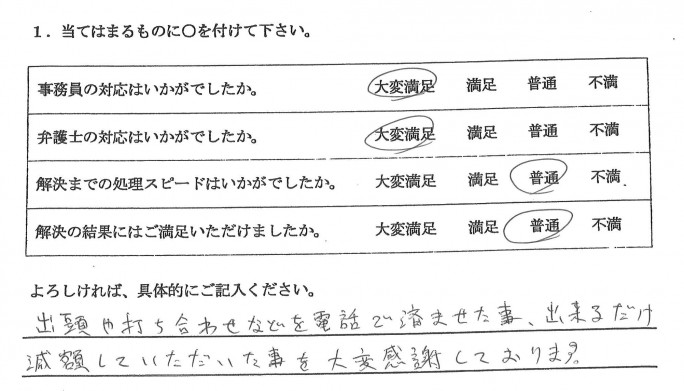 1．当てはまるものに〇を付けて下さい。
事務員の対応はいかがでしたか。 大変満足 満足 普通 不満
弁護士の対応はいかがでしたか。 大変満足 満足 普通 不満
解決までの処理スピードはいかがでしたか。 大変満足 満足 普通 不満
解決の結果にはご満足いただけましたか。 大変満足 満足 普通 不満
よろしければ、具体的にご記入ください。
出頭や打ち合わせなどを電話で済ませた事、出来るだけ
減額していただいた事を大変感謝しております。